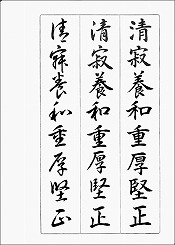 清寂養和重厚堅正
清寂養和重厚堅正
清寂養和重厚堅正